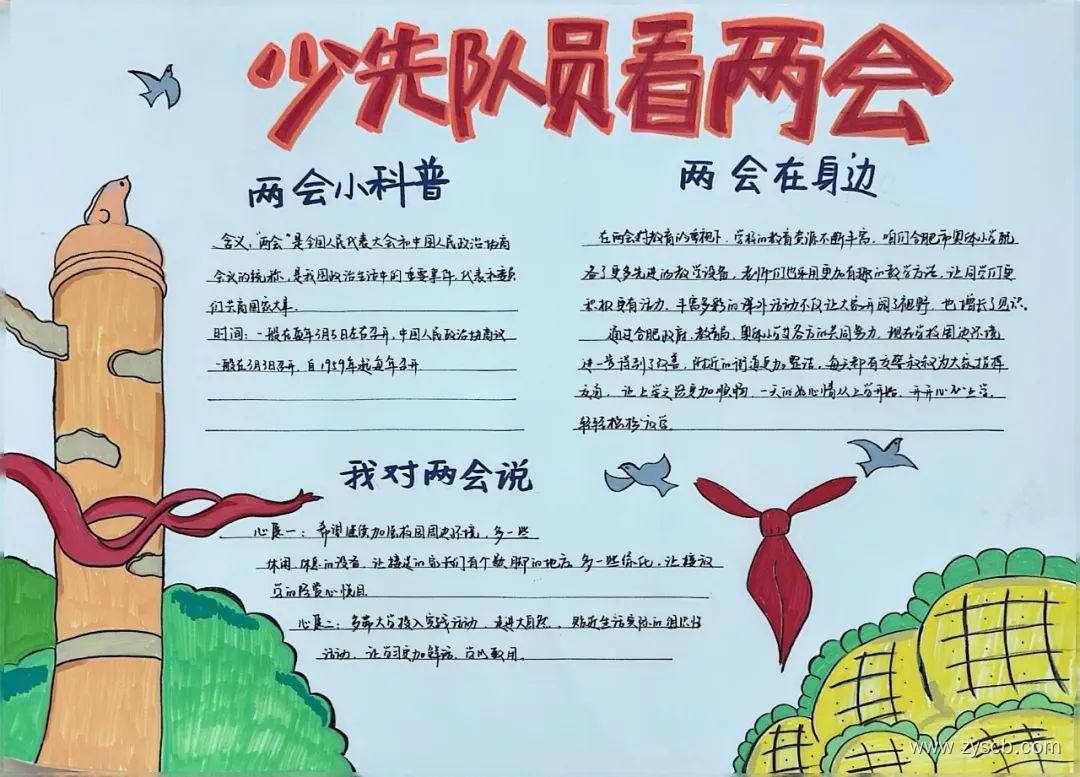 少先队员看两会
两会小科普
含义:"两会"是全国人民代表大会和中国人民政治协商
会议的统称,是我国政治生活中的重要事件,代表和委员
们共商国家大事。
时间:一般在每年3月5日左右召开,中国人民政治协商议
一般在3月3日召开,自1959年起每年召开
两会在身边
在两会对教育的重视下,学校的教育资源不断丰富,咱们合肥市奥体小学配
备了更多先进的教学设备,老师们也采用更加有趣的教学方法,让同学们更
积极更有活力,丰富多彩的课外活动不仅让大家开阔了视野,也增长了见识。
通过合肥政府,教育局,奥体小学各方的共同努力,现在学校周边环境
进一步得到了改善,附近的街道更加整洁,每天都有交警叔叔为大家指挥
方向,让上学之路更加顺畅,一天的好心情从上学开始,开开心心上学,
轻轻松松放学。
我对两会说
心愿一:希望继续加强校园周边环境,多一些
休闲、休息的设备,让接送的家长们有个歇脚的地方,多一些绿化,让接放
学的路赏心悦目
心愿二:多带大家投入实践活动,走进大自然,贴近生活实际的组织好
活动,让学习更加鲜活,学以致用。
www.zyscb.com